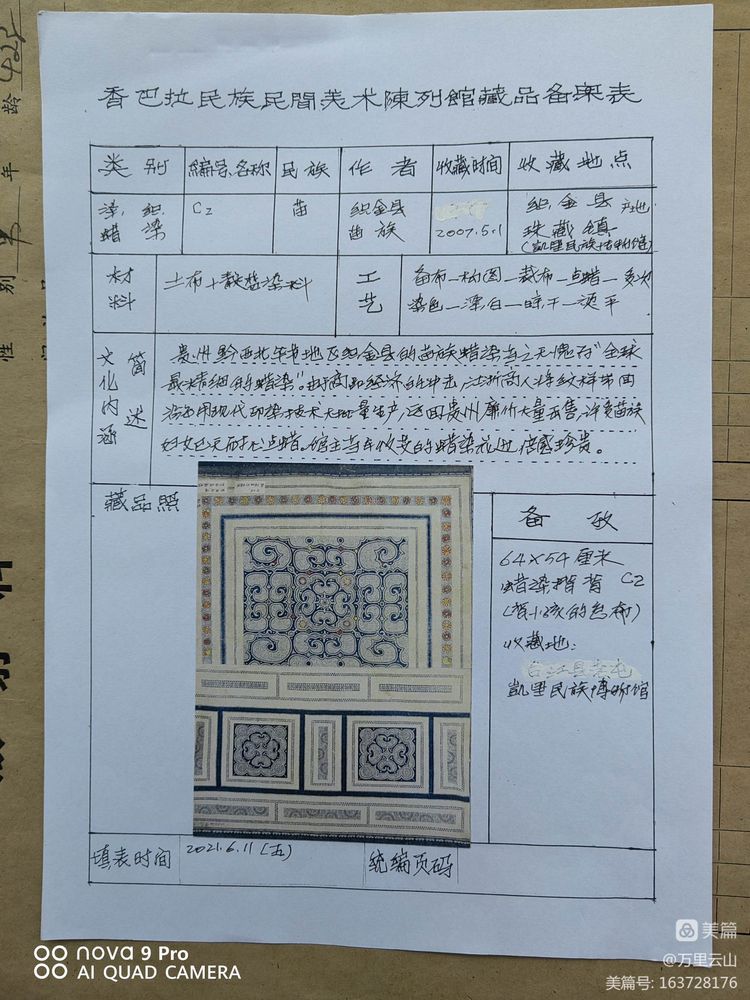 香巴拉民族民間美术陳列館藏品备案表
类别
編号、名称
民族
作者
收藏时间
收藏地点
染、织、
蜡染
C2
苗
织金县
苗族
2007.5.1
织金县产地
珠藏镇
(凱里民族博物馆)
材料
土布+靛蓝染料
工艺
备布—构图—裁布—点蜡—多次
染色—漂白—晾干—烫平
文化内涵
简述
贵州黔西北毕节地区织金县的苗族蜡染当之无愧为"全球
最精细的蜡染"。由于商品经济的冲击,江浙商人将纹样带回
浙江用现代印染技术大批量生产,返回贵州廉价大量出售,许多苗族
妇女已无耐心点蜡。馆主当年收集的蜡染就更倍感珍贵。
藏品照
备攷
64×54厘米
蜡染揹背 C2
(背小孩的
收藏地:
台江县老屯
凱里民族博物馆
填表时间
2021.6.11(五)
统编页码
龄 42岁
年
性别 男
nova 9 Pro
AI QUAD CAMERA
美篇
@万里云山
美篇号: 163728176